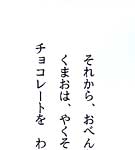 それから、おべん
くまおは、やくそ
チョコレートを　わ